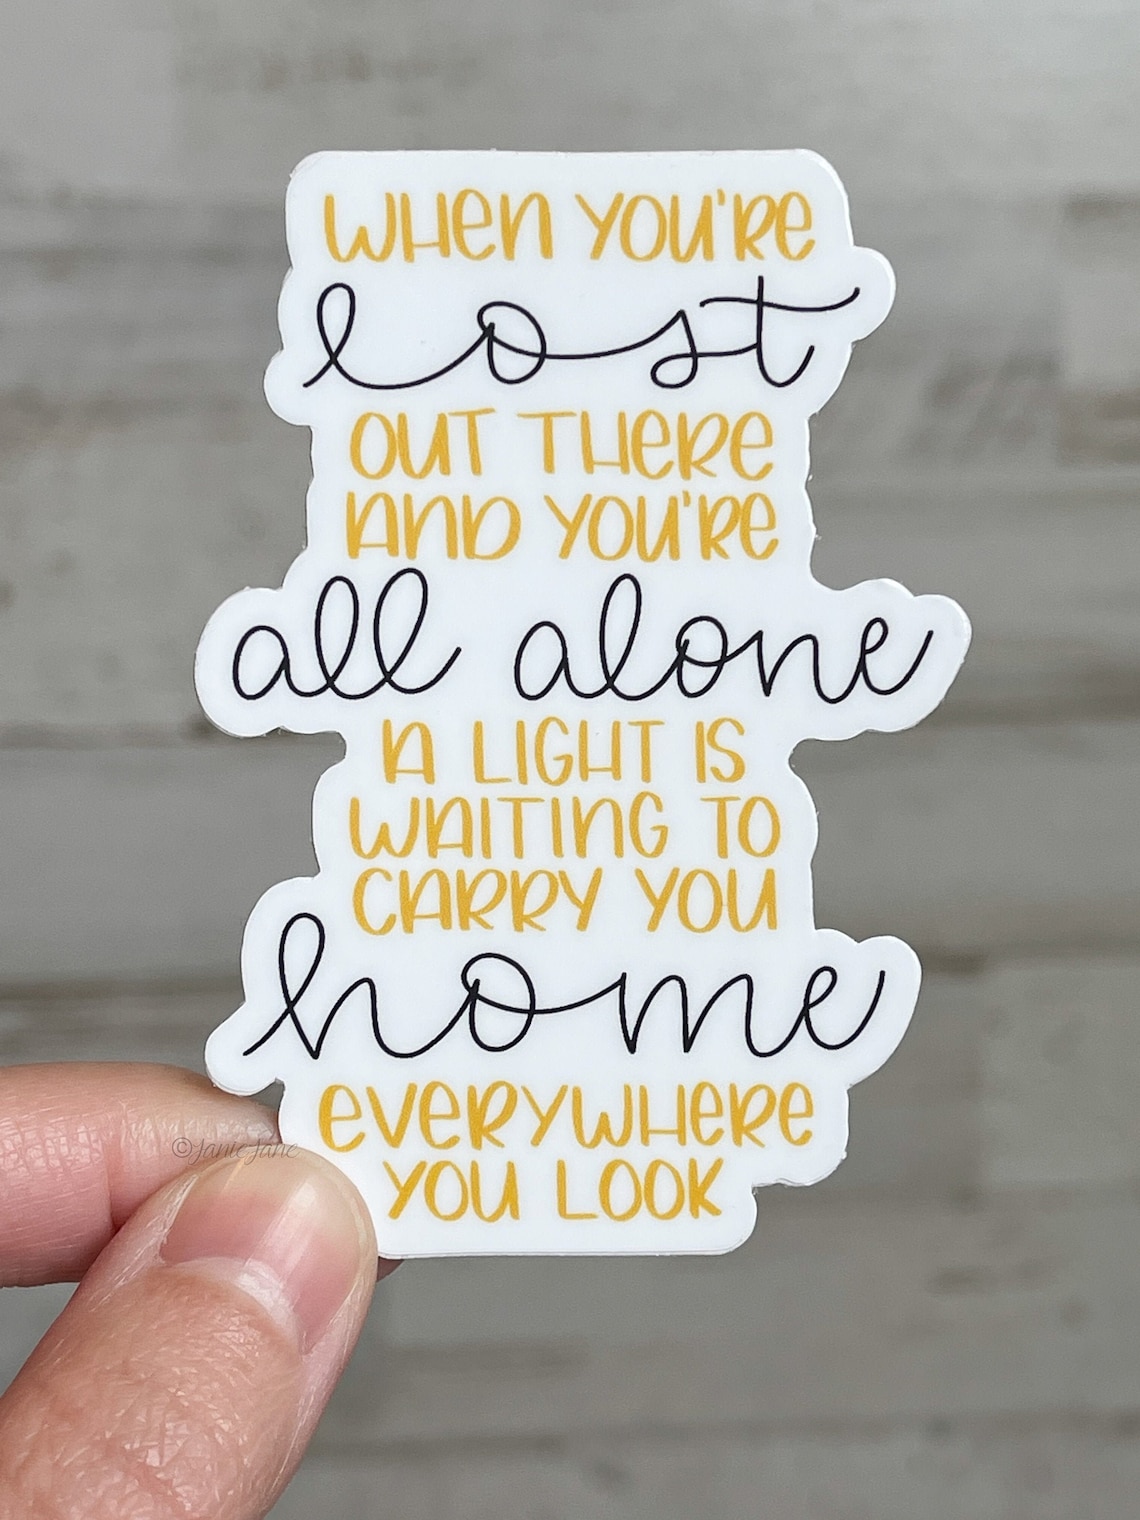 WHEN YOU'RE
lost
OUT THERE
AND YOU'RE
all alone
A LIGHT IS
WAITING TO
CARRY YOU
home
EVERYWHERE
YOU LOOK
©JanieJane